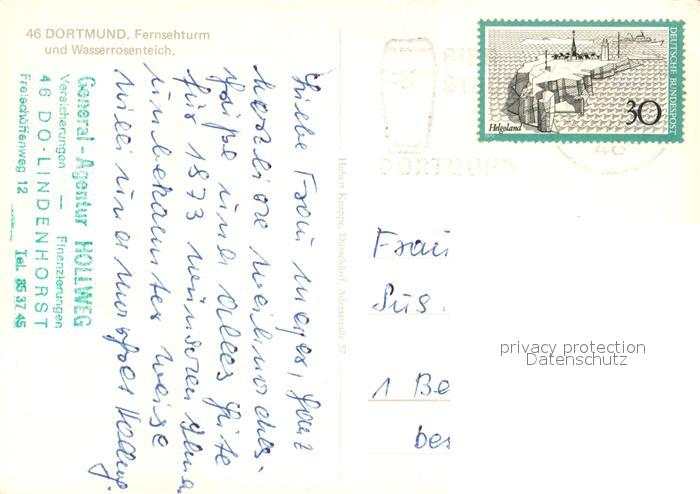 46 DORTMUND. Fernsehturm
und Wasserrosenteich.
General-Agentur HOLLWEG
Versicherungen — Finanzierungen
46 DO-LINDENHORST
Freischöffenweg 12 Tel. 85 37 45
Liebe Frau Meyer, ganz
herzliche Weihnachts-
grüße und alles Gute
für 1973 wünschen Ihnen
unbekannter Weise
Willi und
Hubert Knoppe, Düsseldorf, Adersstraße 57
DEUTSCHE BUNDESPOST
Helgoland
30
46
DORTMUND
Frau
Sus
1 Be
bes
privacy protection
Datenschutz